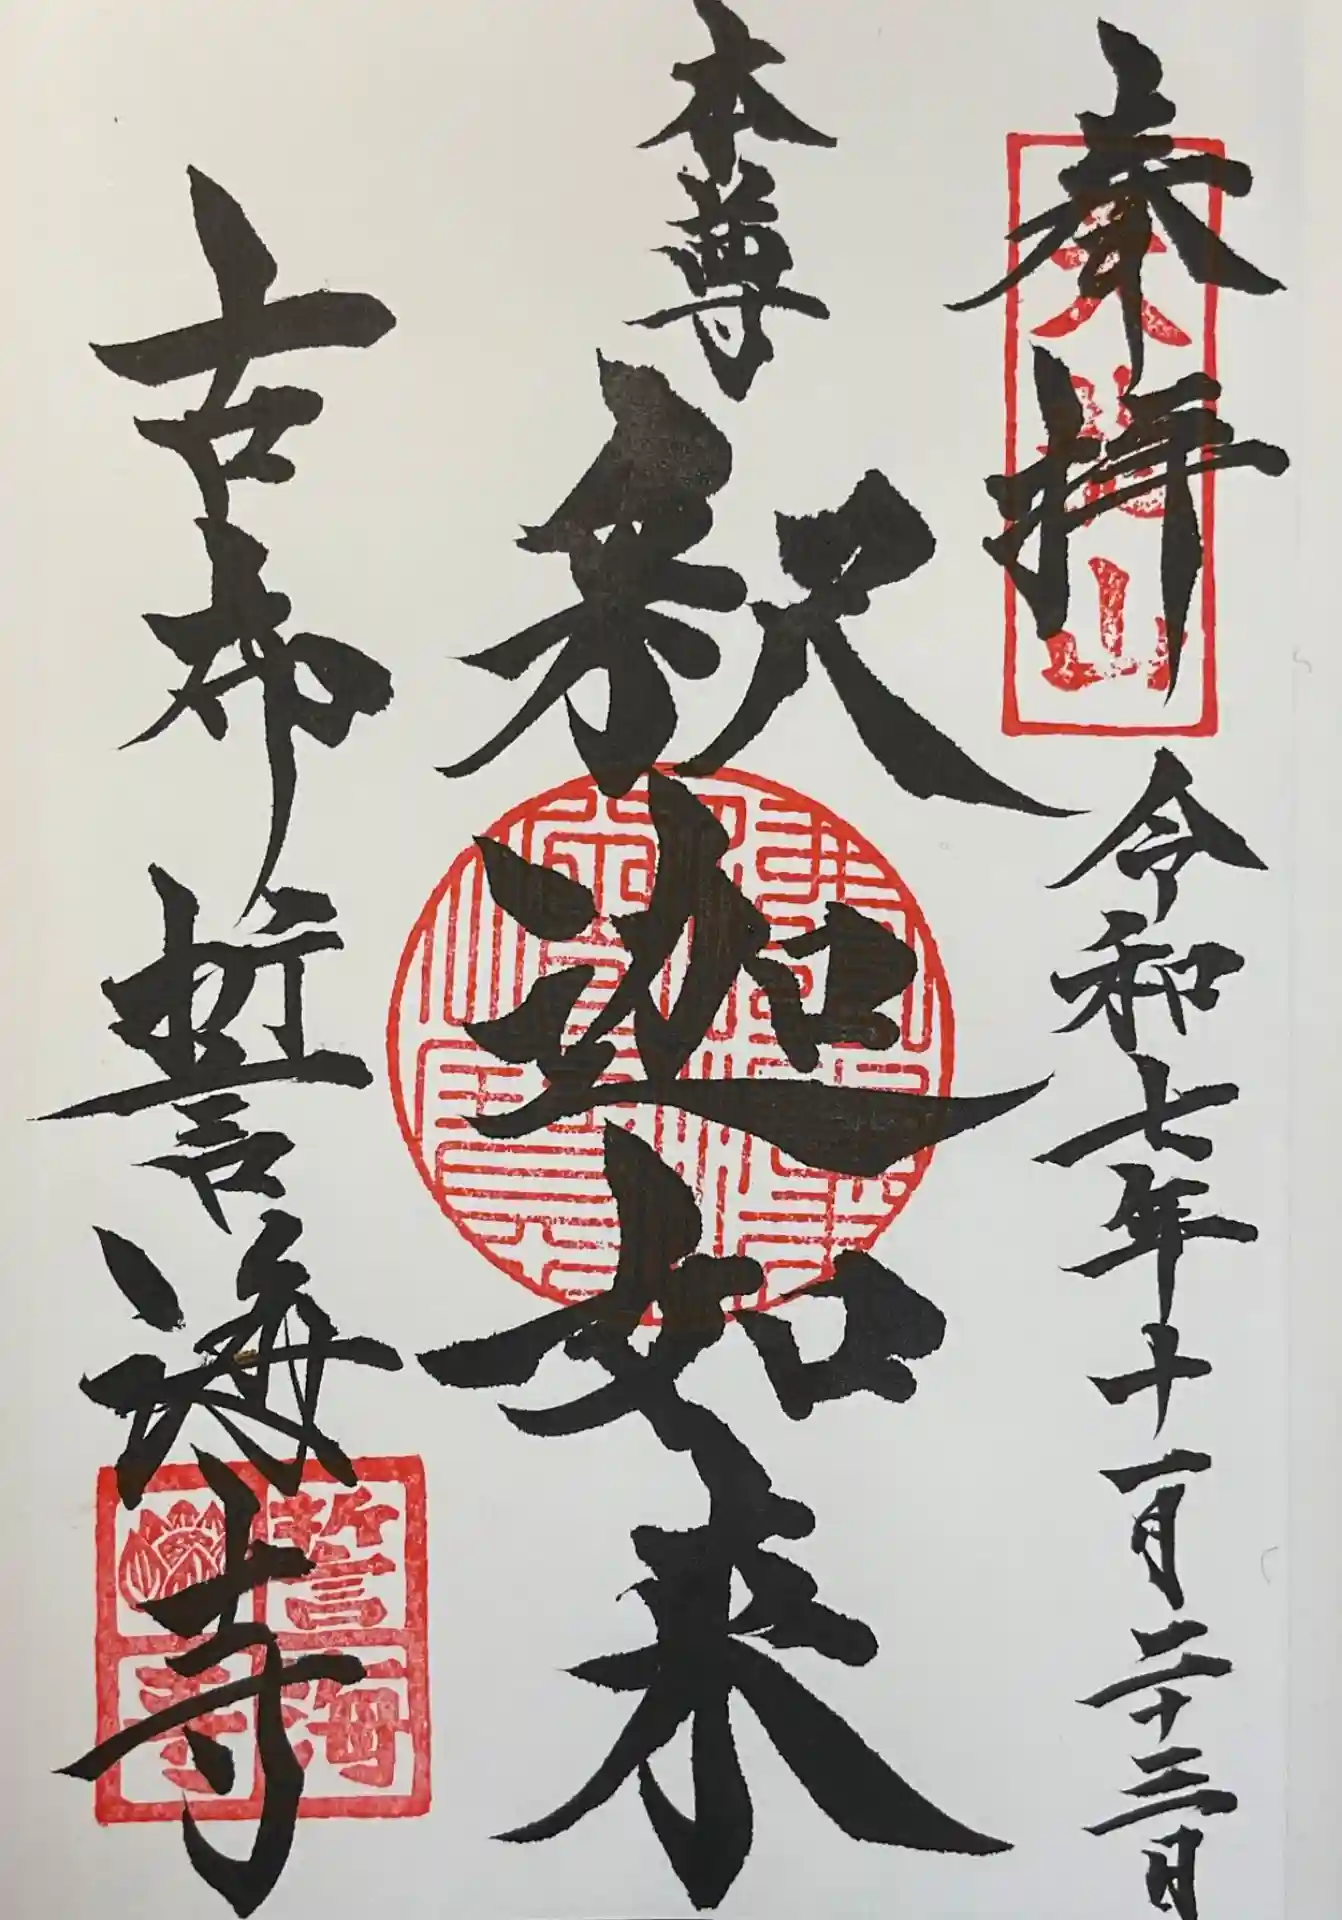 奉拝
令和七年十一月二十三日
本尊
釈迦如来
古布
誓海寺
誓海寺